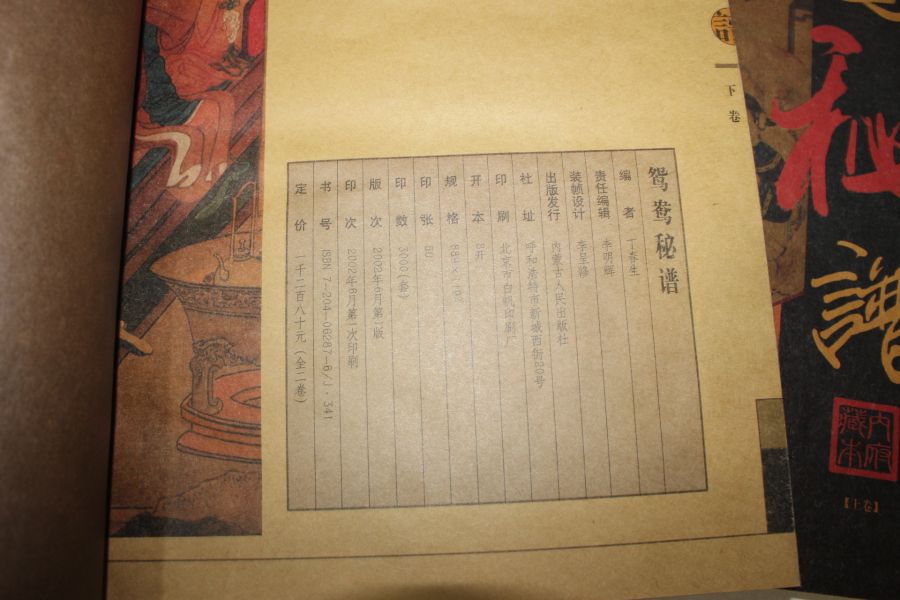 鸳鸯秘谱
编 者 丁春生
责任编辑 李明辉
装帧设计 李呈修
出版发行 内蒙古人民出版社
社 址 呼和浩特市新城西街20号
印 刷 北京市白帆印刷厂
开 本 8开
规 格
印 张 80
印 数 3000(套)
版 次 2002年6月第一版
印 次 2002年6月第一次印刷
书 号 ISBN 7-204-06287-6/J·341
定 价 一千二百八十元(全二卷)
下卷
秘
譜
内府
藏本
【上卷】